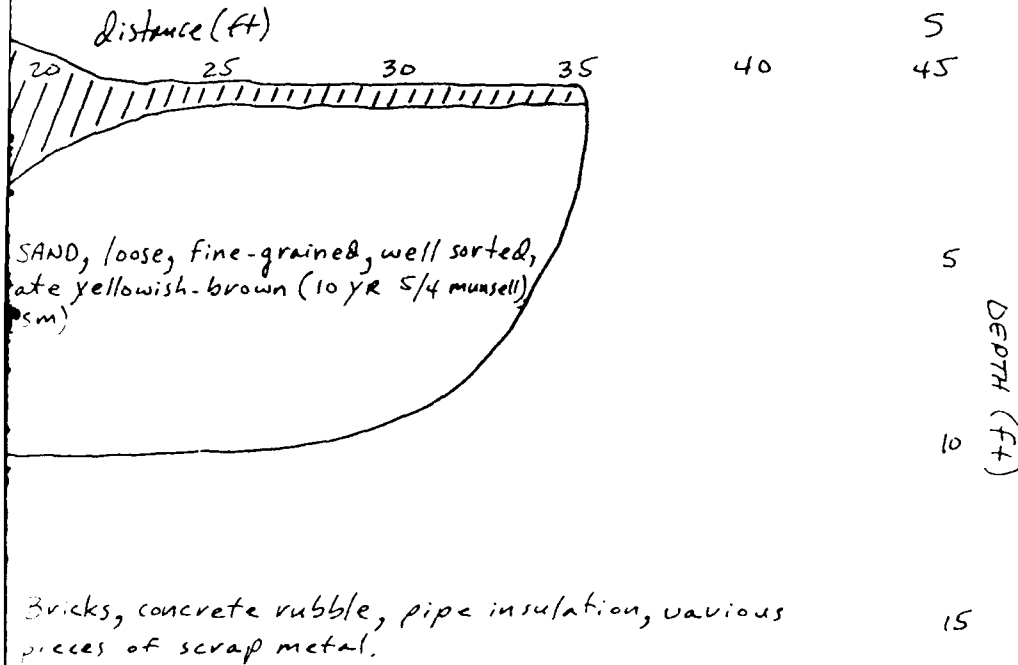 distance (ft)
S
20 25 30 35 40 45
SAND, loose, fine-grained, well sorted,
ate yellowish-brown (10 YR 5/4 munsell)
sm)
5
DEPTH (ft)
10
Bricks, concrete rubble, pipe insulation, various
pieces of scrap metal.
15